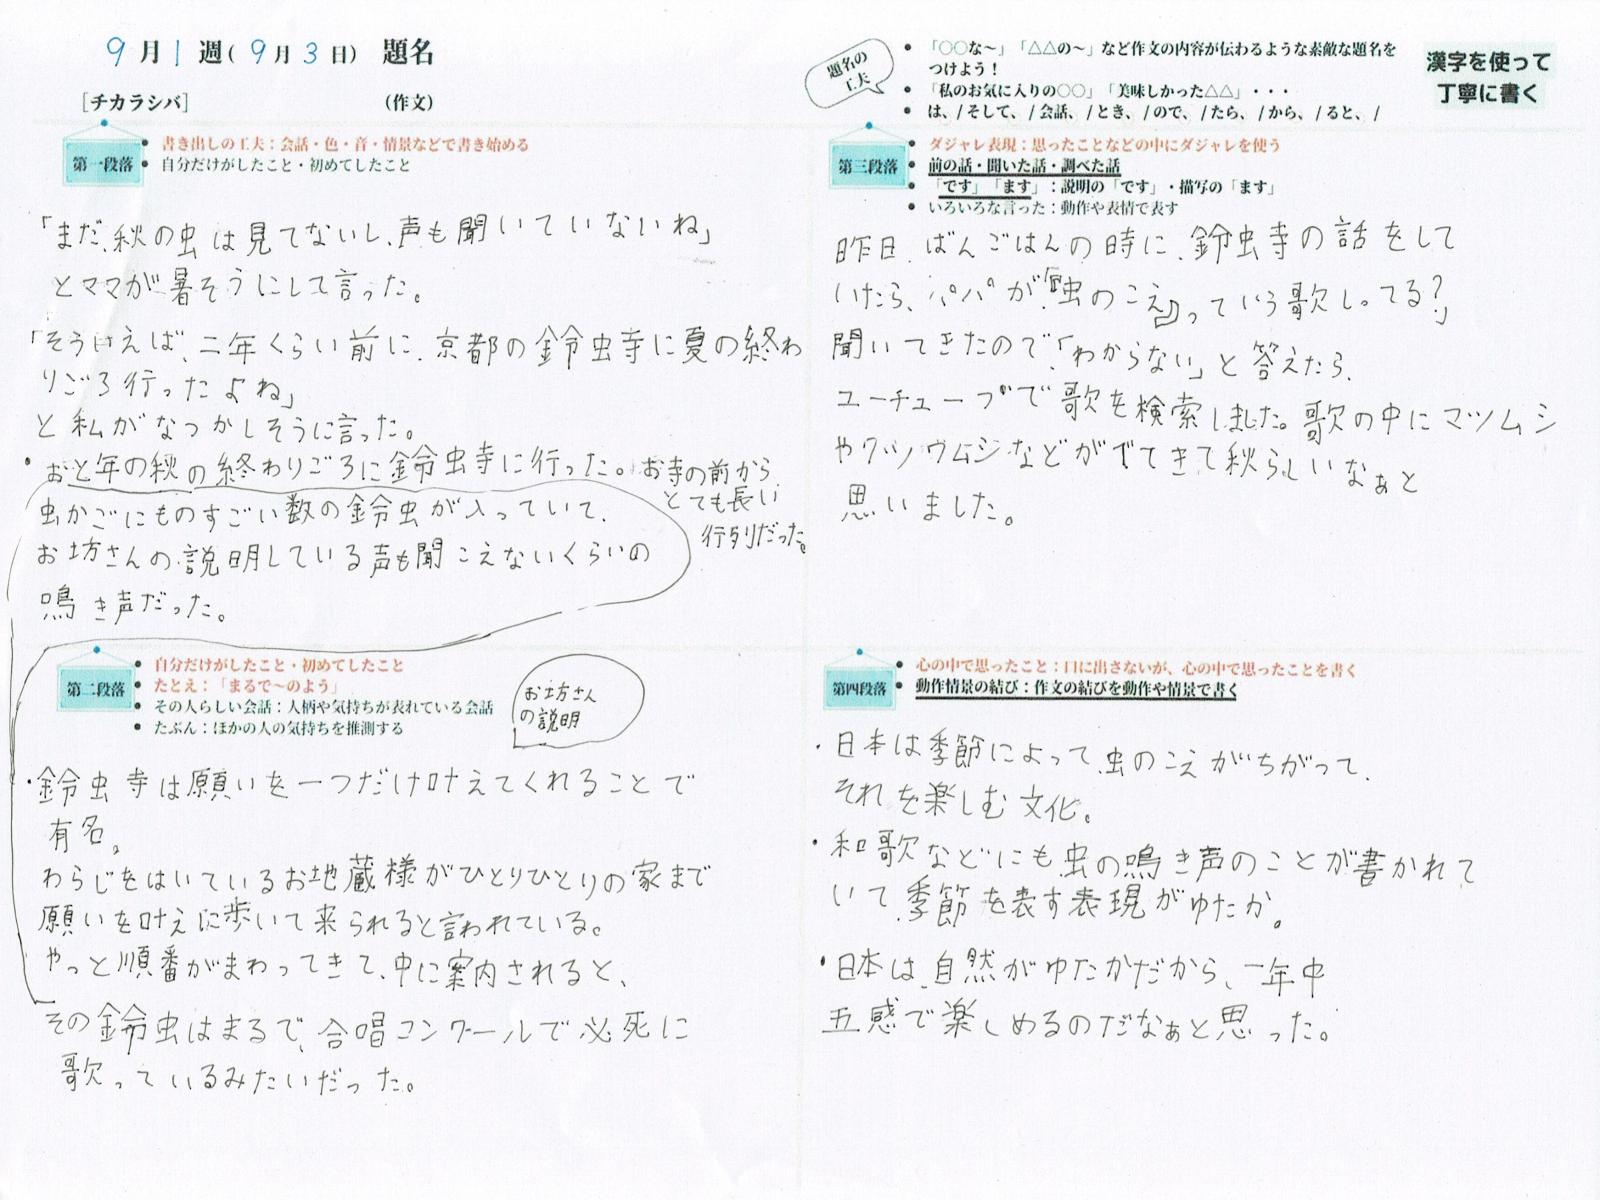 9月1週(9月3日) 題名
[チカラシバ] (作文)
題名の工夫
• 「○○な〜」「△△の〜」など作文の内容が伝わるような素敵な題名を
つけよう！
• 「私のお気に入りの○○」「美味しかった△△」・・・
• は、/そして、/会話、/とき、/ので、/たら、/から、/ると、/
漢字を使って
丁寧に書く
第一段落
• 書き出しの工夫：会話・色・音・情景などで書き始める
• 自分だけがしたこと・初めてしたこと
「まだ、秋の虫は見てないし、声も聞いていないね」
とママが暑そうにして言った。
「そういえば、二年くらい前に、京都の鈴虫寺に夏の終わ
りごろ行ったよね」
と私がなつかしそうに言った。
・おと年の秋の終わりごろに鈴虫寺に行った。お寺の前から
とても長い
行列だった。
虫かごにものすごい数の鈴虫が入っていて、
お坊さんの説明している声も聞こえないくらいの
鳴き声だった。
第二段落
• 自分だけがしたこと・初めてしたこと
• たとえ：「まるで〜のよう」
• その人らしい会話：人柄や気持ちが表れている会話
• たぶん：ほかの人の気持ちを推測する
お坊さん
の説明
・鈴虫寺は願いを一つだけ叶えてくれることで
有名。
わらじをはいているお地蔵様がひとりひとりの家まで
願いを叶えに歩いて来られると言われている。
やっと順番がまわってきて、中に案内されると、
その鈴虫はまるで、合唱コンクールで必死に
歌っているみたいだった。
第三段落
• ダジャレ表現：思ったことなどの中にダジャレを使う
• 前の話・聞いた話・調べた話
• 「です」「ます」：説明の「です」・描写の「ます」
• いろいろな言った：動作や表情で表す
昨日、ばんごはんの時に、鈴虫寺の話をして
いたら、パパが「『虫のこえ』っていう歌しってる？」
聞いてきたので、「わからない」と答えたら、
ユーチューブで歌を検索しました。歌の中にマツムシ
やクツワムシなどがでてきて秋らしいなぁと
思いました。
第四段落
• 心の中で思ったこと：口に出さないが、心の中で思ったことを書く
• 動作情景の結び：作文の結びを動作や情景で書く
・日本は季節によって、虫のこえがちがって、
それを楽しむ文化。
・和歌などにも虫の鳴き声のことが書かれて
いて、季節を表す表現がゆたか。
・日本は、自然がゆたかだから、一年中
五感で楽しめるのだなぁと思った。